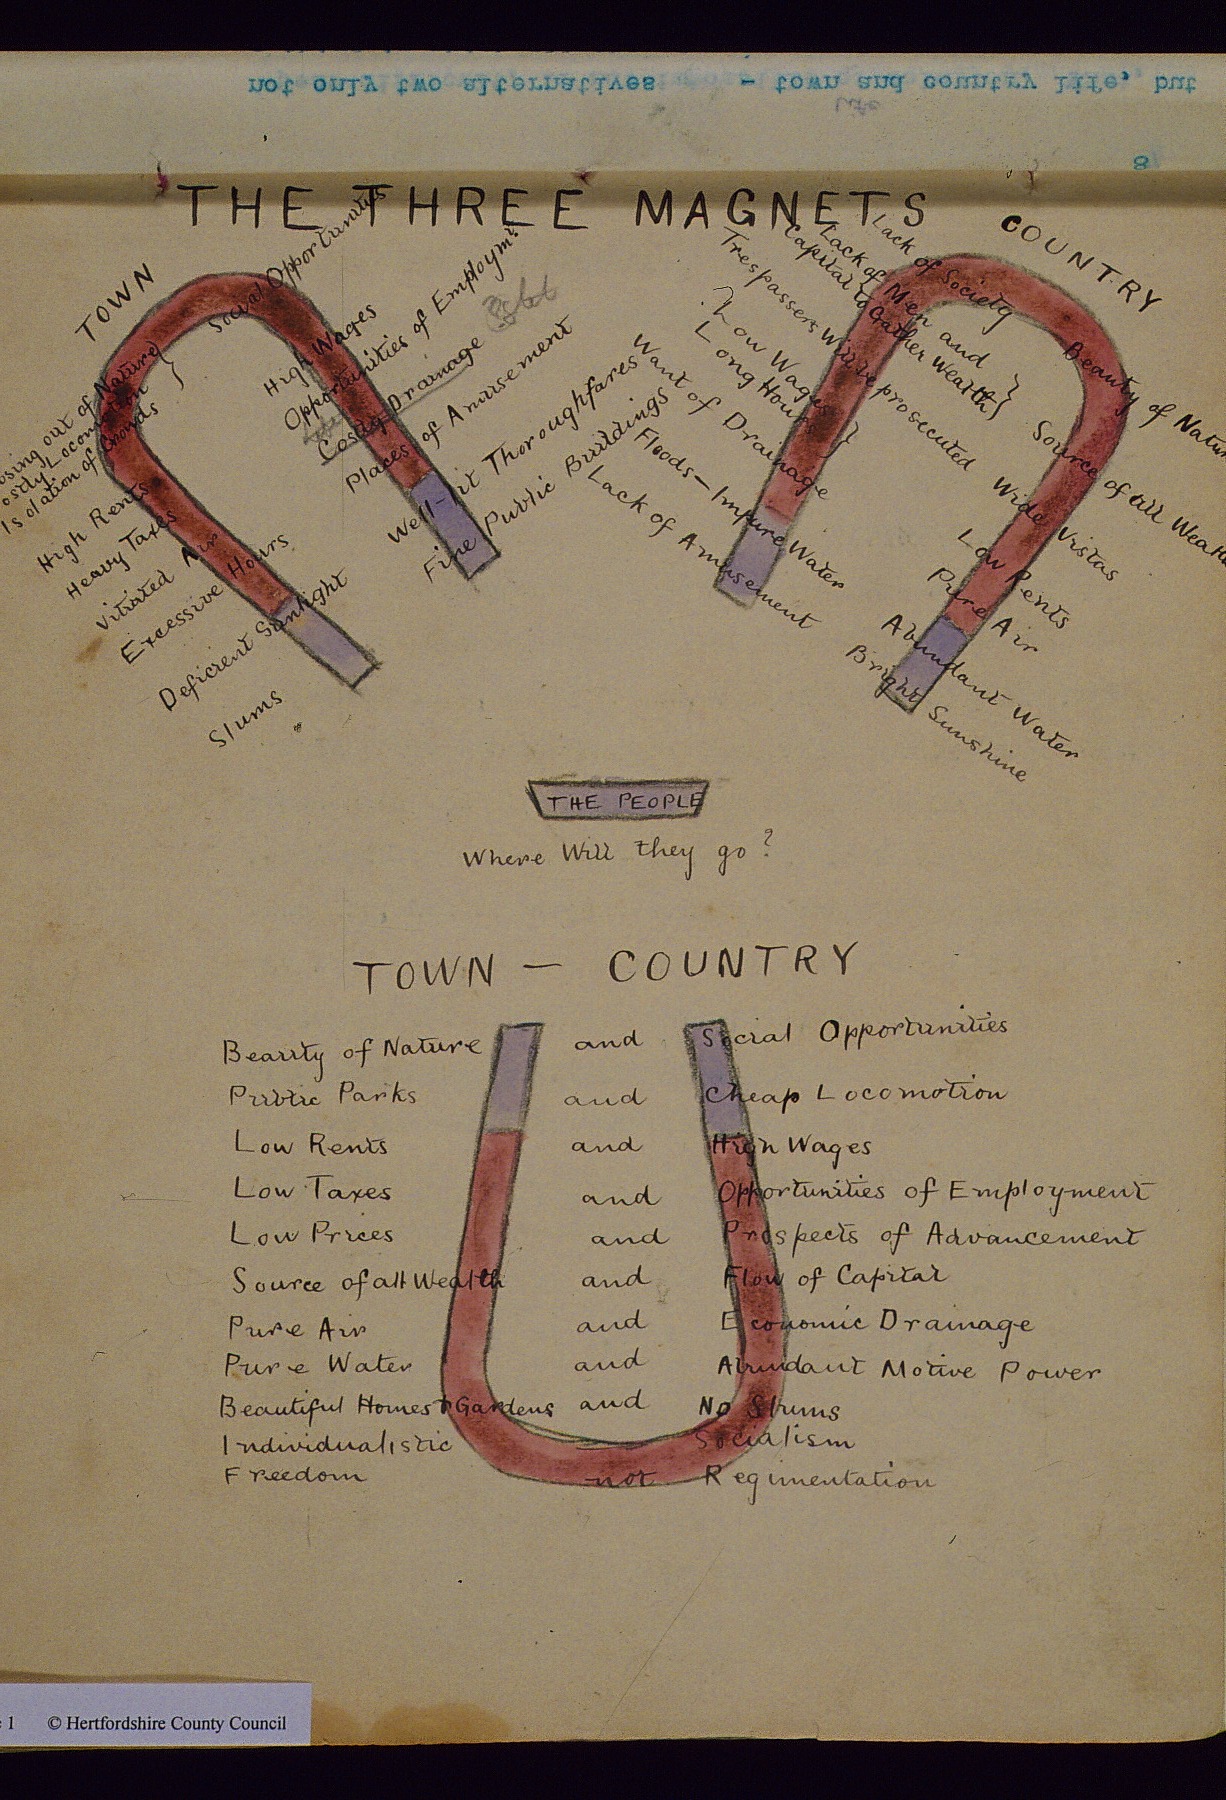 not only two alternatives - town and country life, but
life
8
THE THREE MAGNETS
TOWN
out of Nature
Locomotion
Isolation of Crowds
High Rents
Heavy Taxes
Vitiated Air
Excessive Hours
Deficient Sunlight
Slums
Social Opportunities
High Wages
Opportunities of Employmt
Costly Drainage
Places of Amusement
Well-lit Thoroughfares
Fine Public Buildings
COUNTRY
Lack of Society
Lack of Men and
Capital to Gather Wealth
Trespassers Will be prosecuted
Low Wages
Long Hours
Want of Drainage
Floods-Impure Water
Lack of Amusement
Beauty of Natur
Source of all Wealt
Wide Vistas
Low Rents
Pure Air
Abundant Water
Bright Sunshine
THE PEOPLE
Where Will they go?
TOWN - COUNTRY
Beauty of Nature and Social Opportunities
Public Parks and Cheap Locomotion
Low Rents and High Wages
Low Taxes and Opportunities of Employment
Low Prices and Prospects of Advancement
Source of all Wealth and Flow of Capital
Pure Air and Economic Drainage
Pure Water and Abundant Motive Power
Beautiful Homes & Gardens and No Slums
Individualistic Socialism
Freedom not Regimentation
1 © Hertfordshire County Council